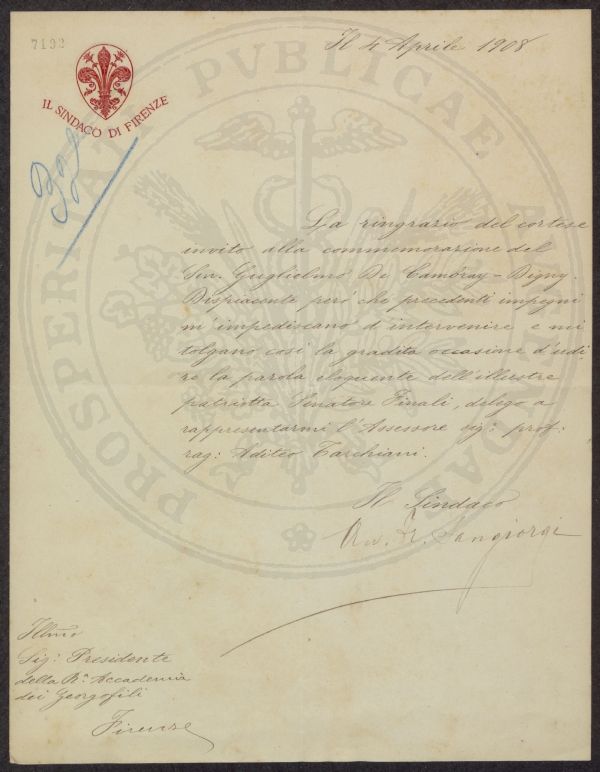 7132
Il 4 Aprile 1908
IL SINDACO DI FIRENZE
La ringrazio del cortese
invito alla commemorazione del
Sen. Guglielmo De Cambray-Digny.
Dispiacente però che precedenti impegni
m'impediscano d'intervenire e mi
tolgano così la gradita occasione d'udi
re la parola eloquente dell'illustre
patriotta Senatore Finali, delego a
rappresentarmi l'Assessore sig: prof:
rag: Aditeo Tarchiani.
Il Sindaco
Sangiorgi
Illmo
Sig: Presidente
della Ra. Accademia
dei Georgofili
Firenze
PROSPERITATI PVBLICAE